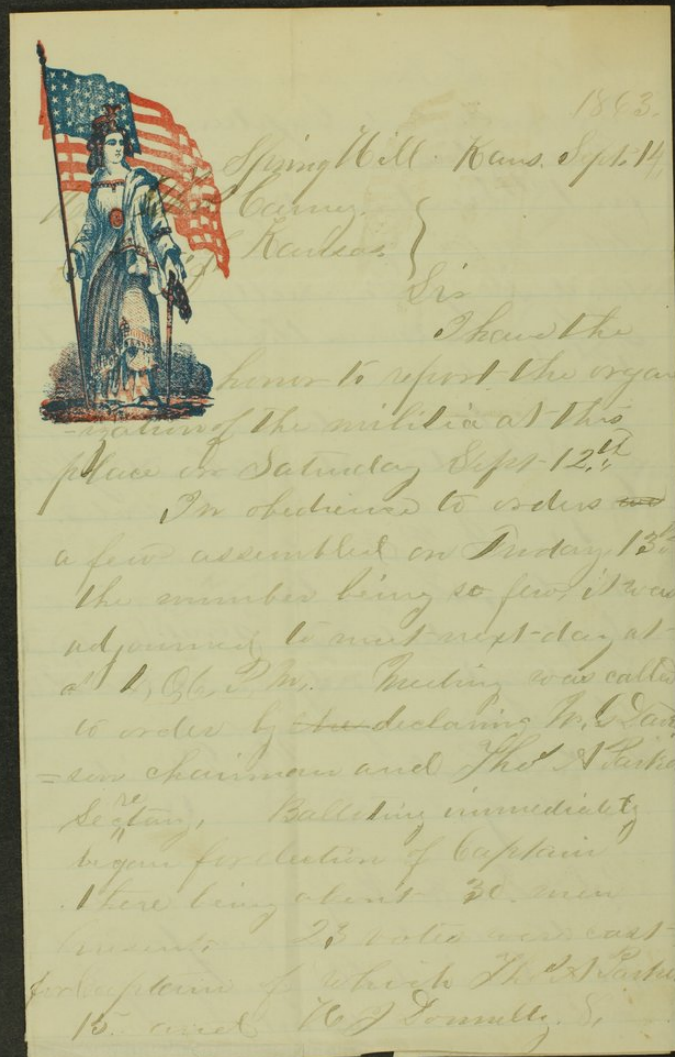 1863.
Spring Hill. Kans. Sept. 14
Carney.
of Kansas
Sir
I have the
honor to report the organ
-ization of the militia at this
place on Saturday Sept 12th
In obedience to orders
a few assembled on Friday
the number being so few, it was
adjourned to meet next day at
P. M. Meeting was called
to order by the declaring W.
chairman and Thos A Parke
Secretary, Balloting immediately
began for election of Captain
There being about 30 men
present. 23 votes were cast
for Captain of which Thos A Parke
15. and H J Donnelly.